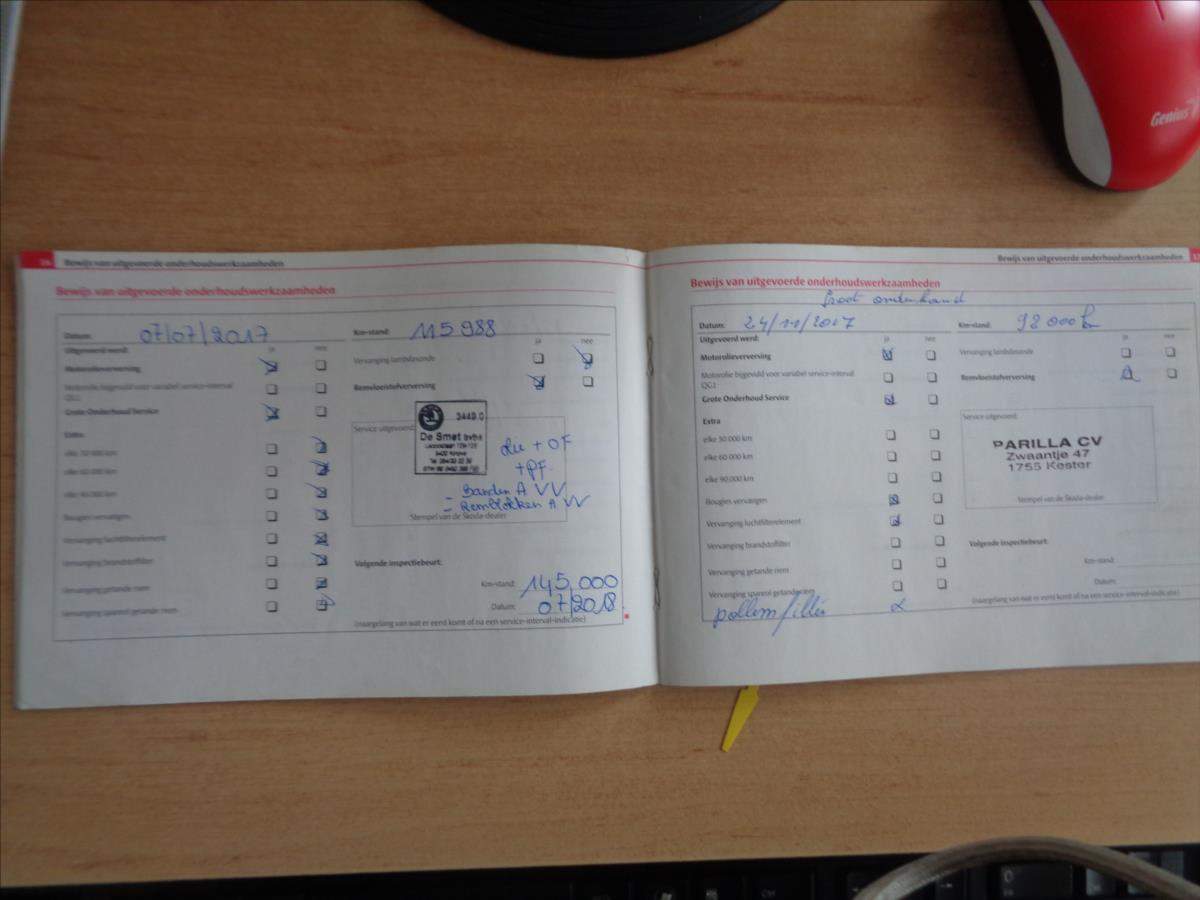 Bewijs van uitgevoerde onderhoudswerkzaamheden
Bewijs van uitgevoerde onderhoudswerkzaamheden
Datum: 07/07/2017
Km-stand: 115 988
Uitgevoerd werd: ja nee
Motorolieverversing
Motorolie bijgevuld voor variabel service-interval
QG1
Grote Onderhoud Service
Extra:
elke 60 000 km
Bougies vervangen
Vervanging luchtfilterelement
Vervanging brandstoffilter
Vervanging getande riem
Vervanging spanrol getande riem
ja nee
Vervanging lambdasonde
Remvloeistofverversing
Service uitgevoerd:
3449.0
De Smet bvba
+ OF
+PF
- Banden A VV
- Remblokken A VV
Stempel van de Skoda-dealer
Volgende inspectiebeurt:
Km-stand: 145.000
Datum: 07/2018
(naargelang van wat er eerst komt of na een service-interval-indicatie)
Bewijs van uitgevoerde onderhoudswerkzaamheden
Bewijs van uitgevoerde onderhoudswerkzaamheden
Groot onderhoud
Datum: 24/11/2017
Km-stand: 92 000 km
Uitgevoerd werd: ja nee
Motorolieverversing
Motorolie bijgevuld voor variabel service-interval
QG1
Grote Onderhoud Service
Extra
elke 30 000 km
elke 60 000 km
elke 90 000 km
Bougies vervangen
Vervanging luchtfilterelement
Vervanging brandstoffilter
Vervanging getande riem
Vervanging spanrol getande riem
pollenfilter
ja nee
Vervanging lambdasonde
Remvloeistofverversing
Service uitgevoerd:
PARILLA CV
Zwaantje 47
1755 Kester
Stempel van de Skoda-dealer
Volgende inspectiebeurt:
Km-stand:
Datum:
(naargelang van wat er eerst komt of na een service-interval-indicatie)
Genius